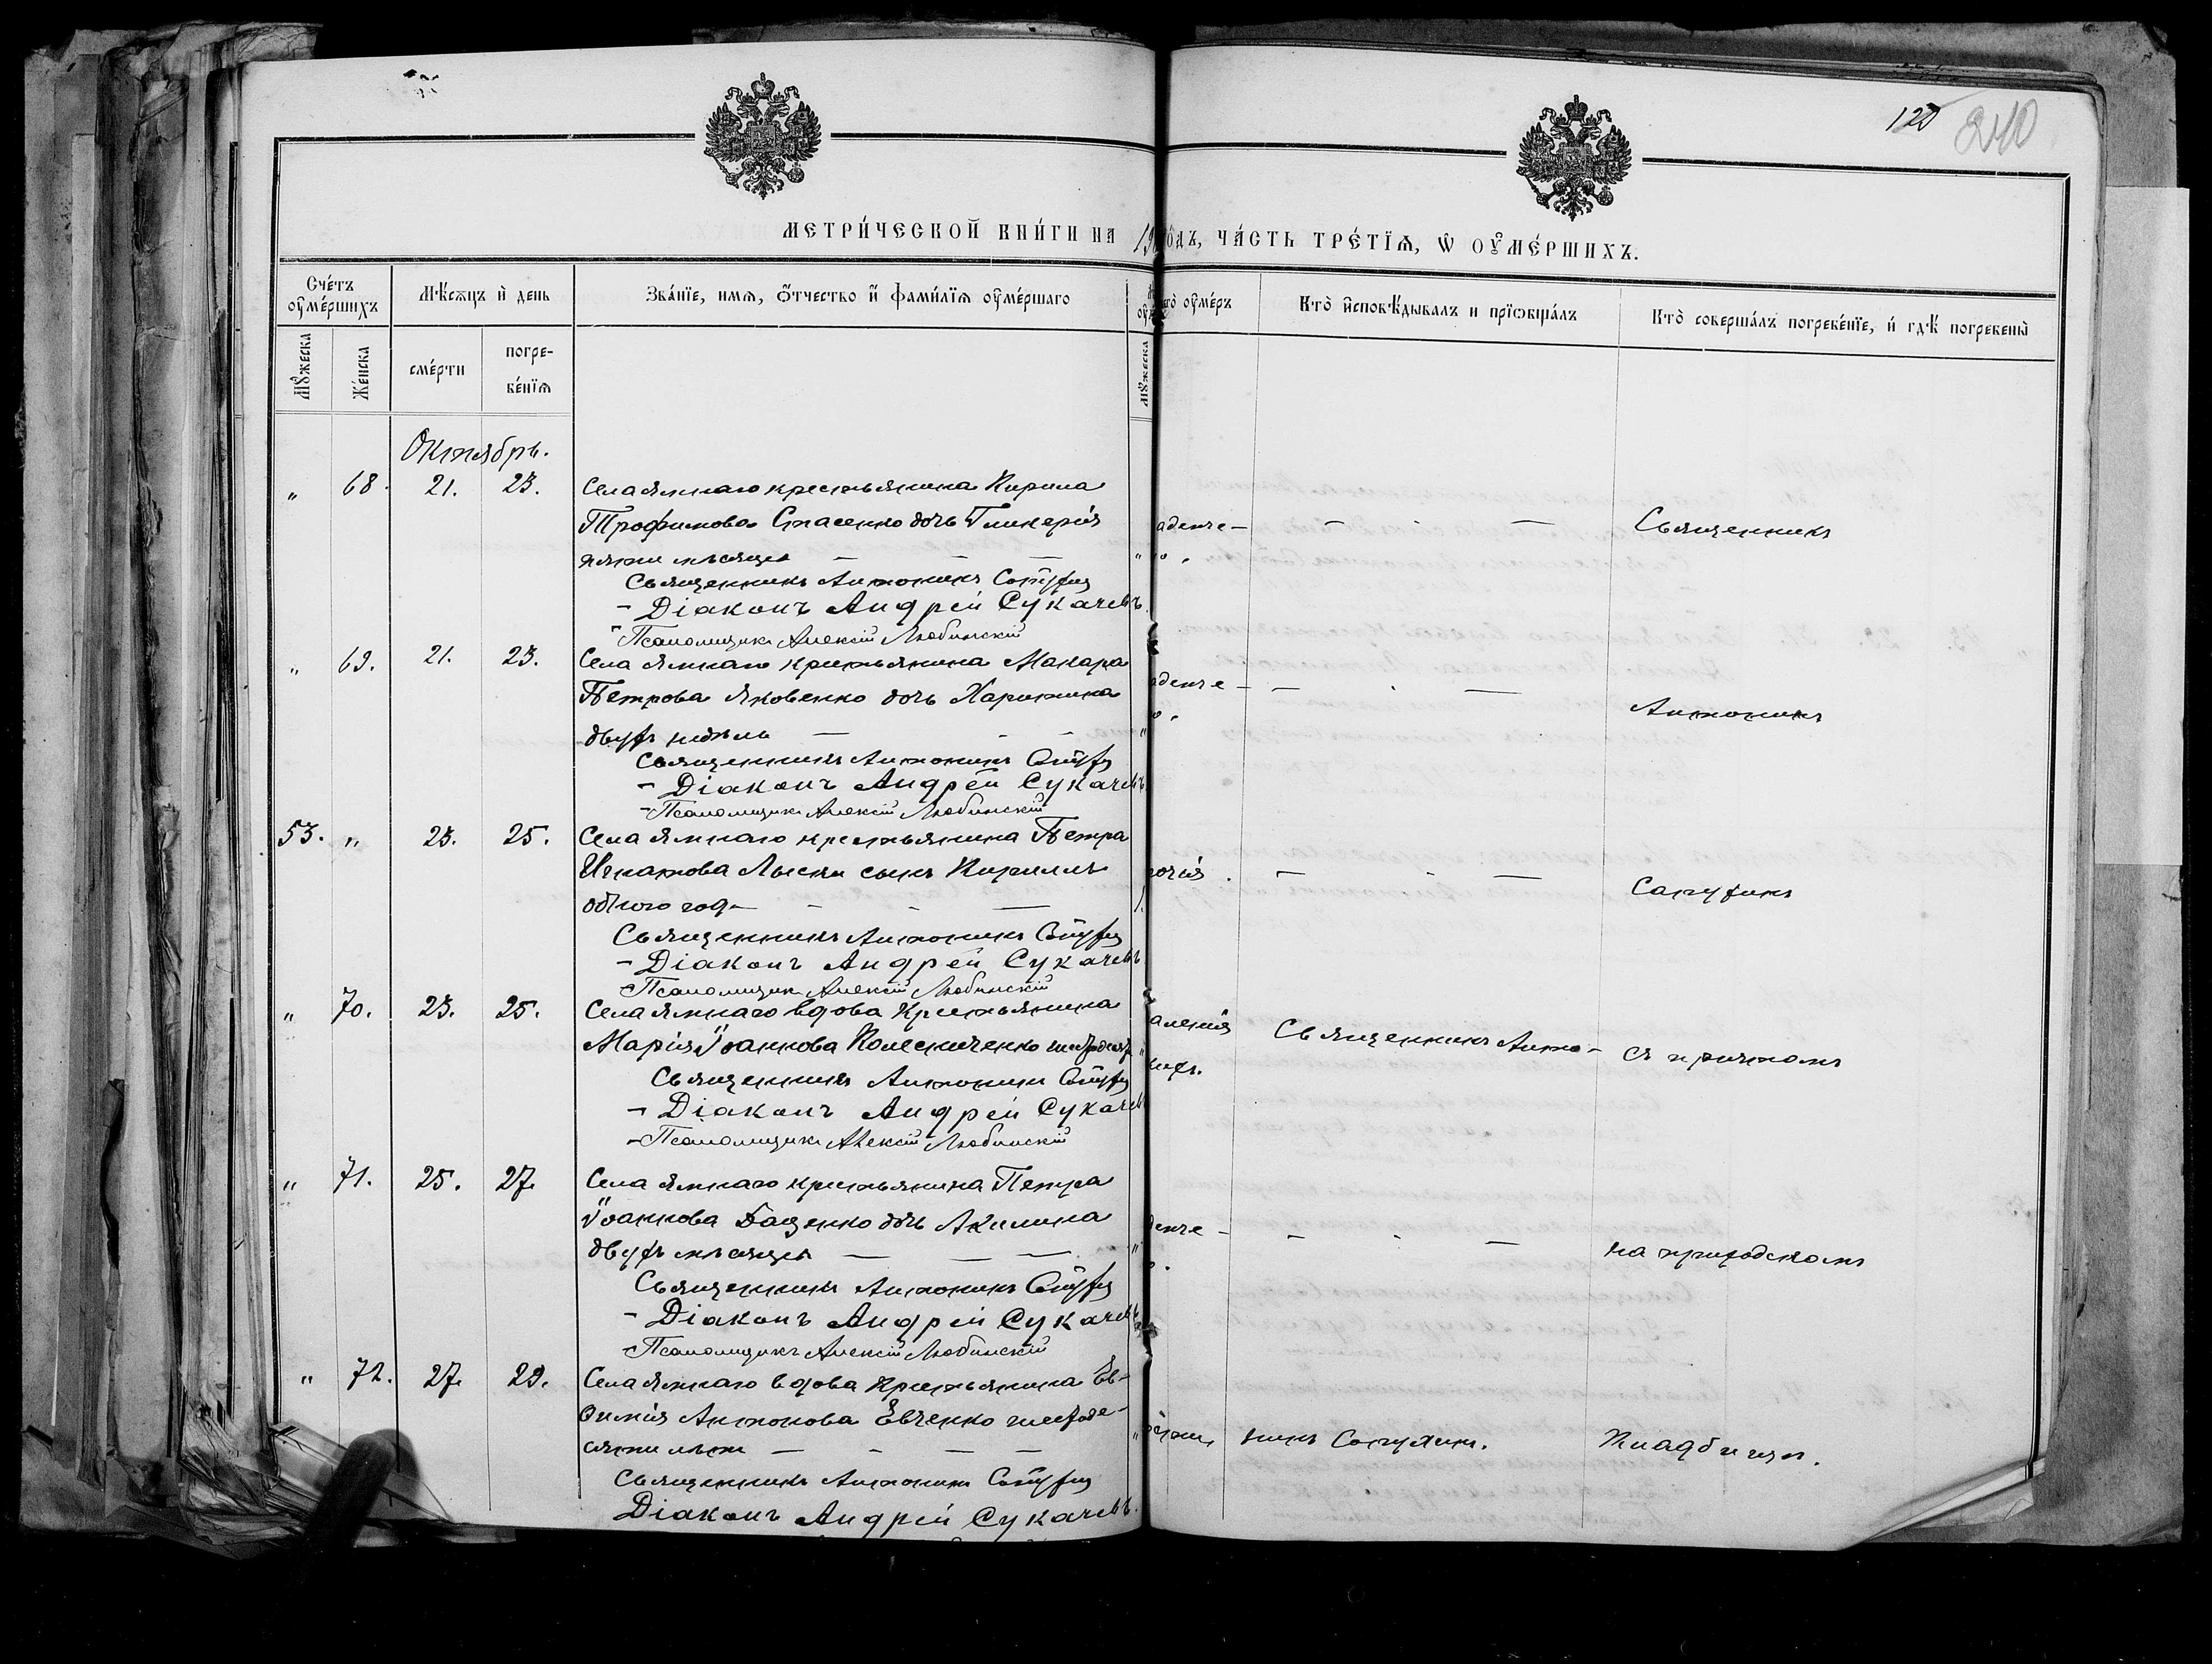 120
240
МЕТРИ́ЧЕСКОЙ КНИ́ГИ НА 19
О́ДЪ, ЧА́СТЬ ТРЕ́ТІѦ, Ѡ҆ ОУ҆МЕ́РШИХЪ.
Сче́тъ оу҆ме́ршихъ
Мѣ́сѧцъ и҆ день
Зва́нїе, имѧ, ѻ҆́тчество и҆ фами́лїѧ оу҆ме́ршаго
го̀ оу҆ме́ръ
Кто̀ и҆сповѣ́дывалъ и прїѡбща́лъ
Кто̀ соверша́лъ погребе́нїе, и҆ гдѣ̀ погребены̀
Мꙋ́жеска
Же́нска
сме́рти
погре-
бе́нїѧ
Мꙋ́жеска
Октябрь.
" 68. 21. 23. Села Ямнаго крестьянина Кирила
Трофимова Стасенко дочь Гликерія
пяти мѣсяцевъ
Священникъ Антонинъ
- Діаконъ Андрей Сукачевъ.
- Псаломщикъ Алексій Любинскій
аденче-
Священникъ
" 69. 21. 23. Села Ямнаго крестьянина Макара
Петрова Яковенко дочь Харитина
двухъ недѣль
Священникъ Антонинъ
- Діаконъ Андрей Сукачевъ
- Псаломщикъ Алексій Любинскій
аденче-
Антонинъ
53. " 23. 25. Села Ямнаго крестьянина Петра
Игнатова Лыски сынъ Кириллъ
одного года
Священникъ Антонинъ
- Діаконъ Андрей Сукачевъ
- Псаломщикъ Алексій Любинскій
1.
Сапухинъ
" 70. 23. 25. Села Ямнаго вдова крестьянина
Марія Іоаннова Колесниченко
Священникъ Антонинъ
- Діаконъ Андрей Сукачевъ
- Псаломщикъ Алексій Любинскій
аленія
Священникъ Анто-
съ причтомъ
" 71. 25. 27. Села Ямнаго крестьянина Петра
Іоаннова Баценко дочь Акилина
двухъ мѣсяцевъ
Священникъ Антонинъ
- Діаконъ Андрей Сукачевъ
- Псаломщикъ Алексій Любинскій
денче-
на приходскомъ
" 72. 27. 29. Села Ямнаго вдова крестьянина Ев-
фимія Антонова Евченко шестьде-
сяти лѣтъ
Священникъ Антонинъ
Діаконъ Андрей Сукачевъ.
нинъ Сапухинъ.
кладбищѣ.